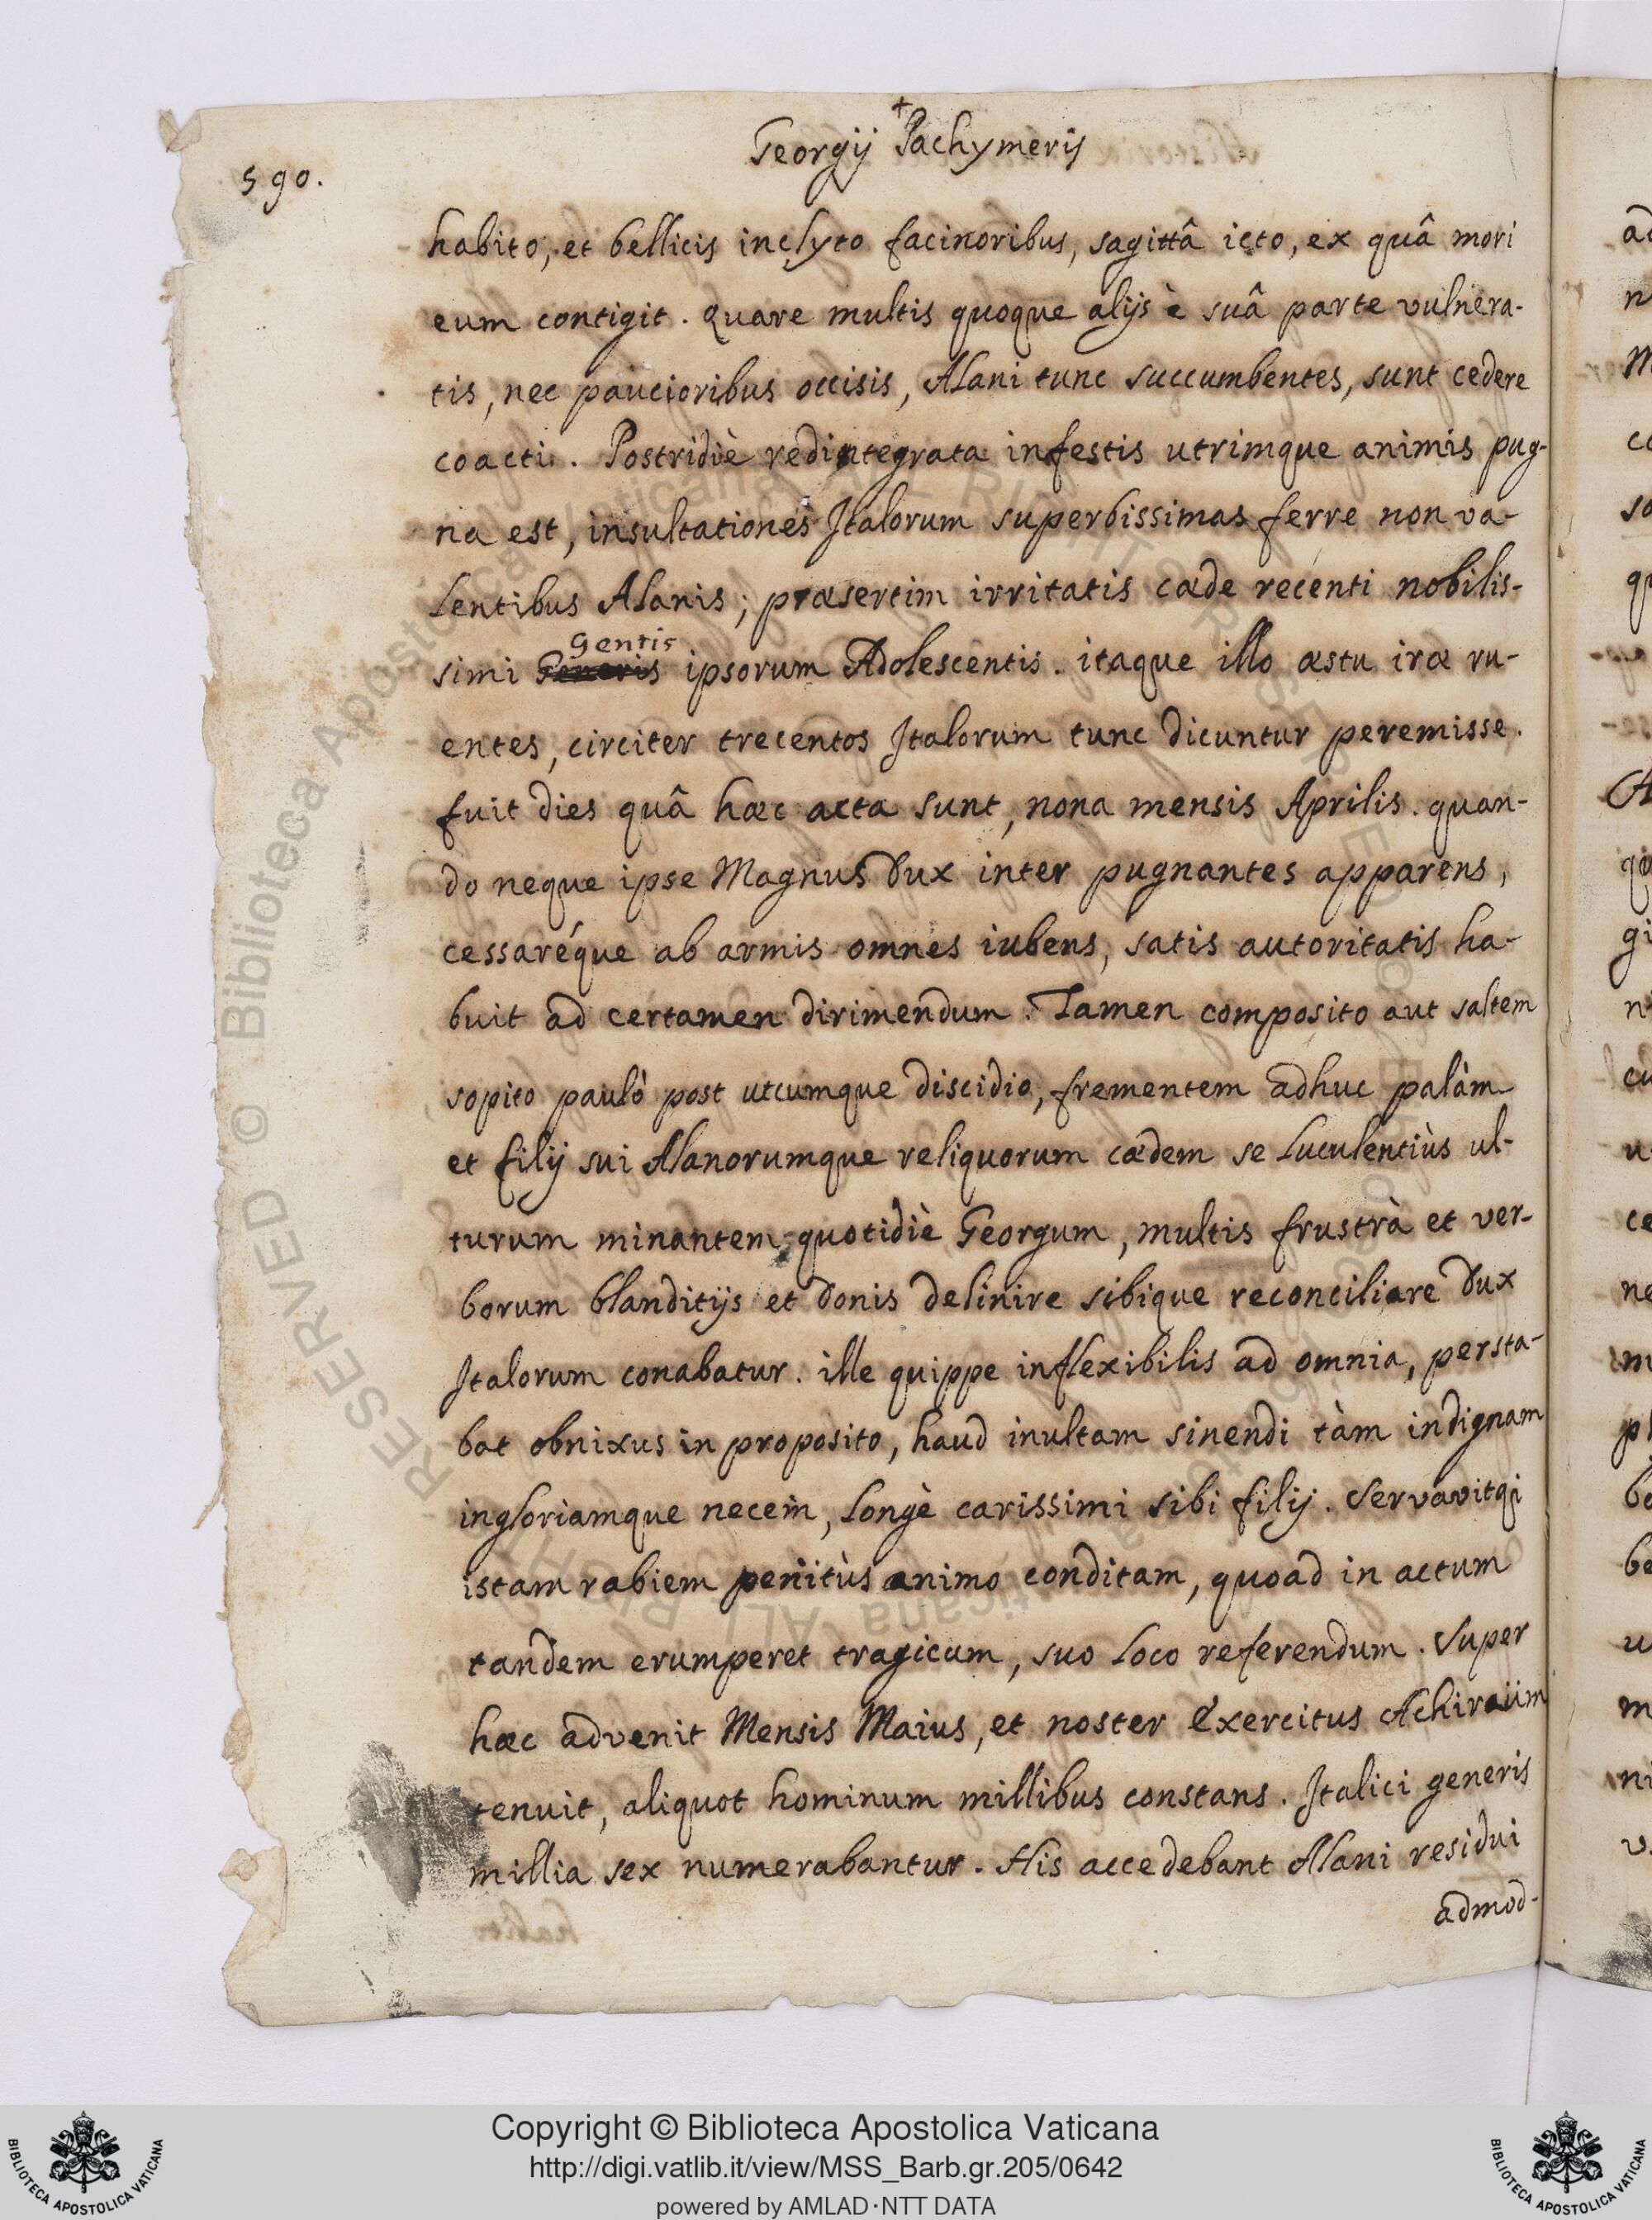 +
Georgij Pachymeris
590.
habito, et bellicis inclyto facinoribus, sagittâ icto, ex quâ mori
eum contigit. Quare multis quoque alijs è suâ parte vulnera-
tis, nec paucioribus occisis, Alani tunc succumbentes, sunt cedere
coacti. Postridiè redintegrata infestis utrimque animis pug-
na est, insultationes Italorum superbissimas ferre non va-
lentibus Alanis; præsertim irritatis cæde recenti nobilis-
Gentis
simi Generis ipsorum Adolescentis. itaque illo æstu iræ ru-
entes, circiter trecentos Italorum tunc dicuntur peremisse.
fuit dies quâ hæc acta sunt, nona mensis Aprilis. quan-
do neque ipse Magnus Dux inter pugnantes apparens,
cessaréque ab armis omnes iubens, satis autoritatis ha-
buit ad certamen dirimendum. Tamen composito aut saltem
sopito paulò post utcumque discidio, frementem adhuc palàm
et filij sui Alanorumque reliquorum cædem se luculentiùs ul-
turum minantem quotidiè Georgum, multis frustrà et ver-
borum blanditijs et donis delinire sibique reconciliare Dux
Italorum conabatur. ille quippe inflexibilis ad omnia, persta-
bat obnixus in proposito, haud inultam sinendi tàm indignam
ingloriamque necem, longè carissimi sibi filij. Servavitqi
istam rabiem penitùs animo conditam, quoad in actum
tandem erumperet tragicum, suo loco referendum. Super
hæc advenit Mensis Maius, et noster Exercitus Achiraüm
tenuit, aliquot hominum millibus constans. Italici generis
millia sex numerabantur. His accedebant Alani residui
admod-
Copyright © Biblioteca Apostolica Vaticana
http://digi.vatlib.it/view/MSS_Barb.gr.205/0642
powered by AMLAD·NTT DATA
BIBLIOTECA APOSTOLICA VATICANA
BIBLIOTECA APOSTOLICA VATICANA